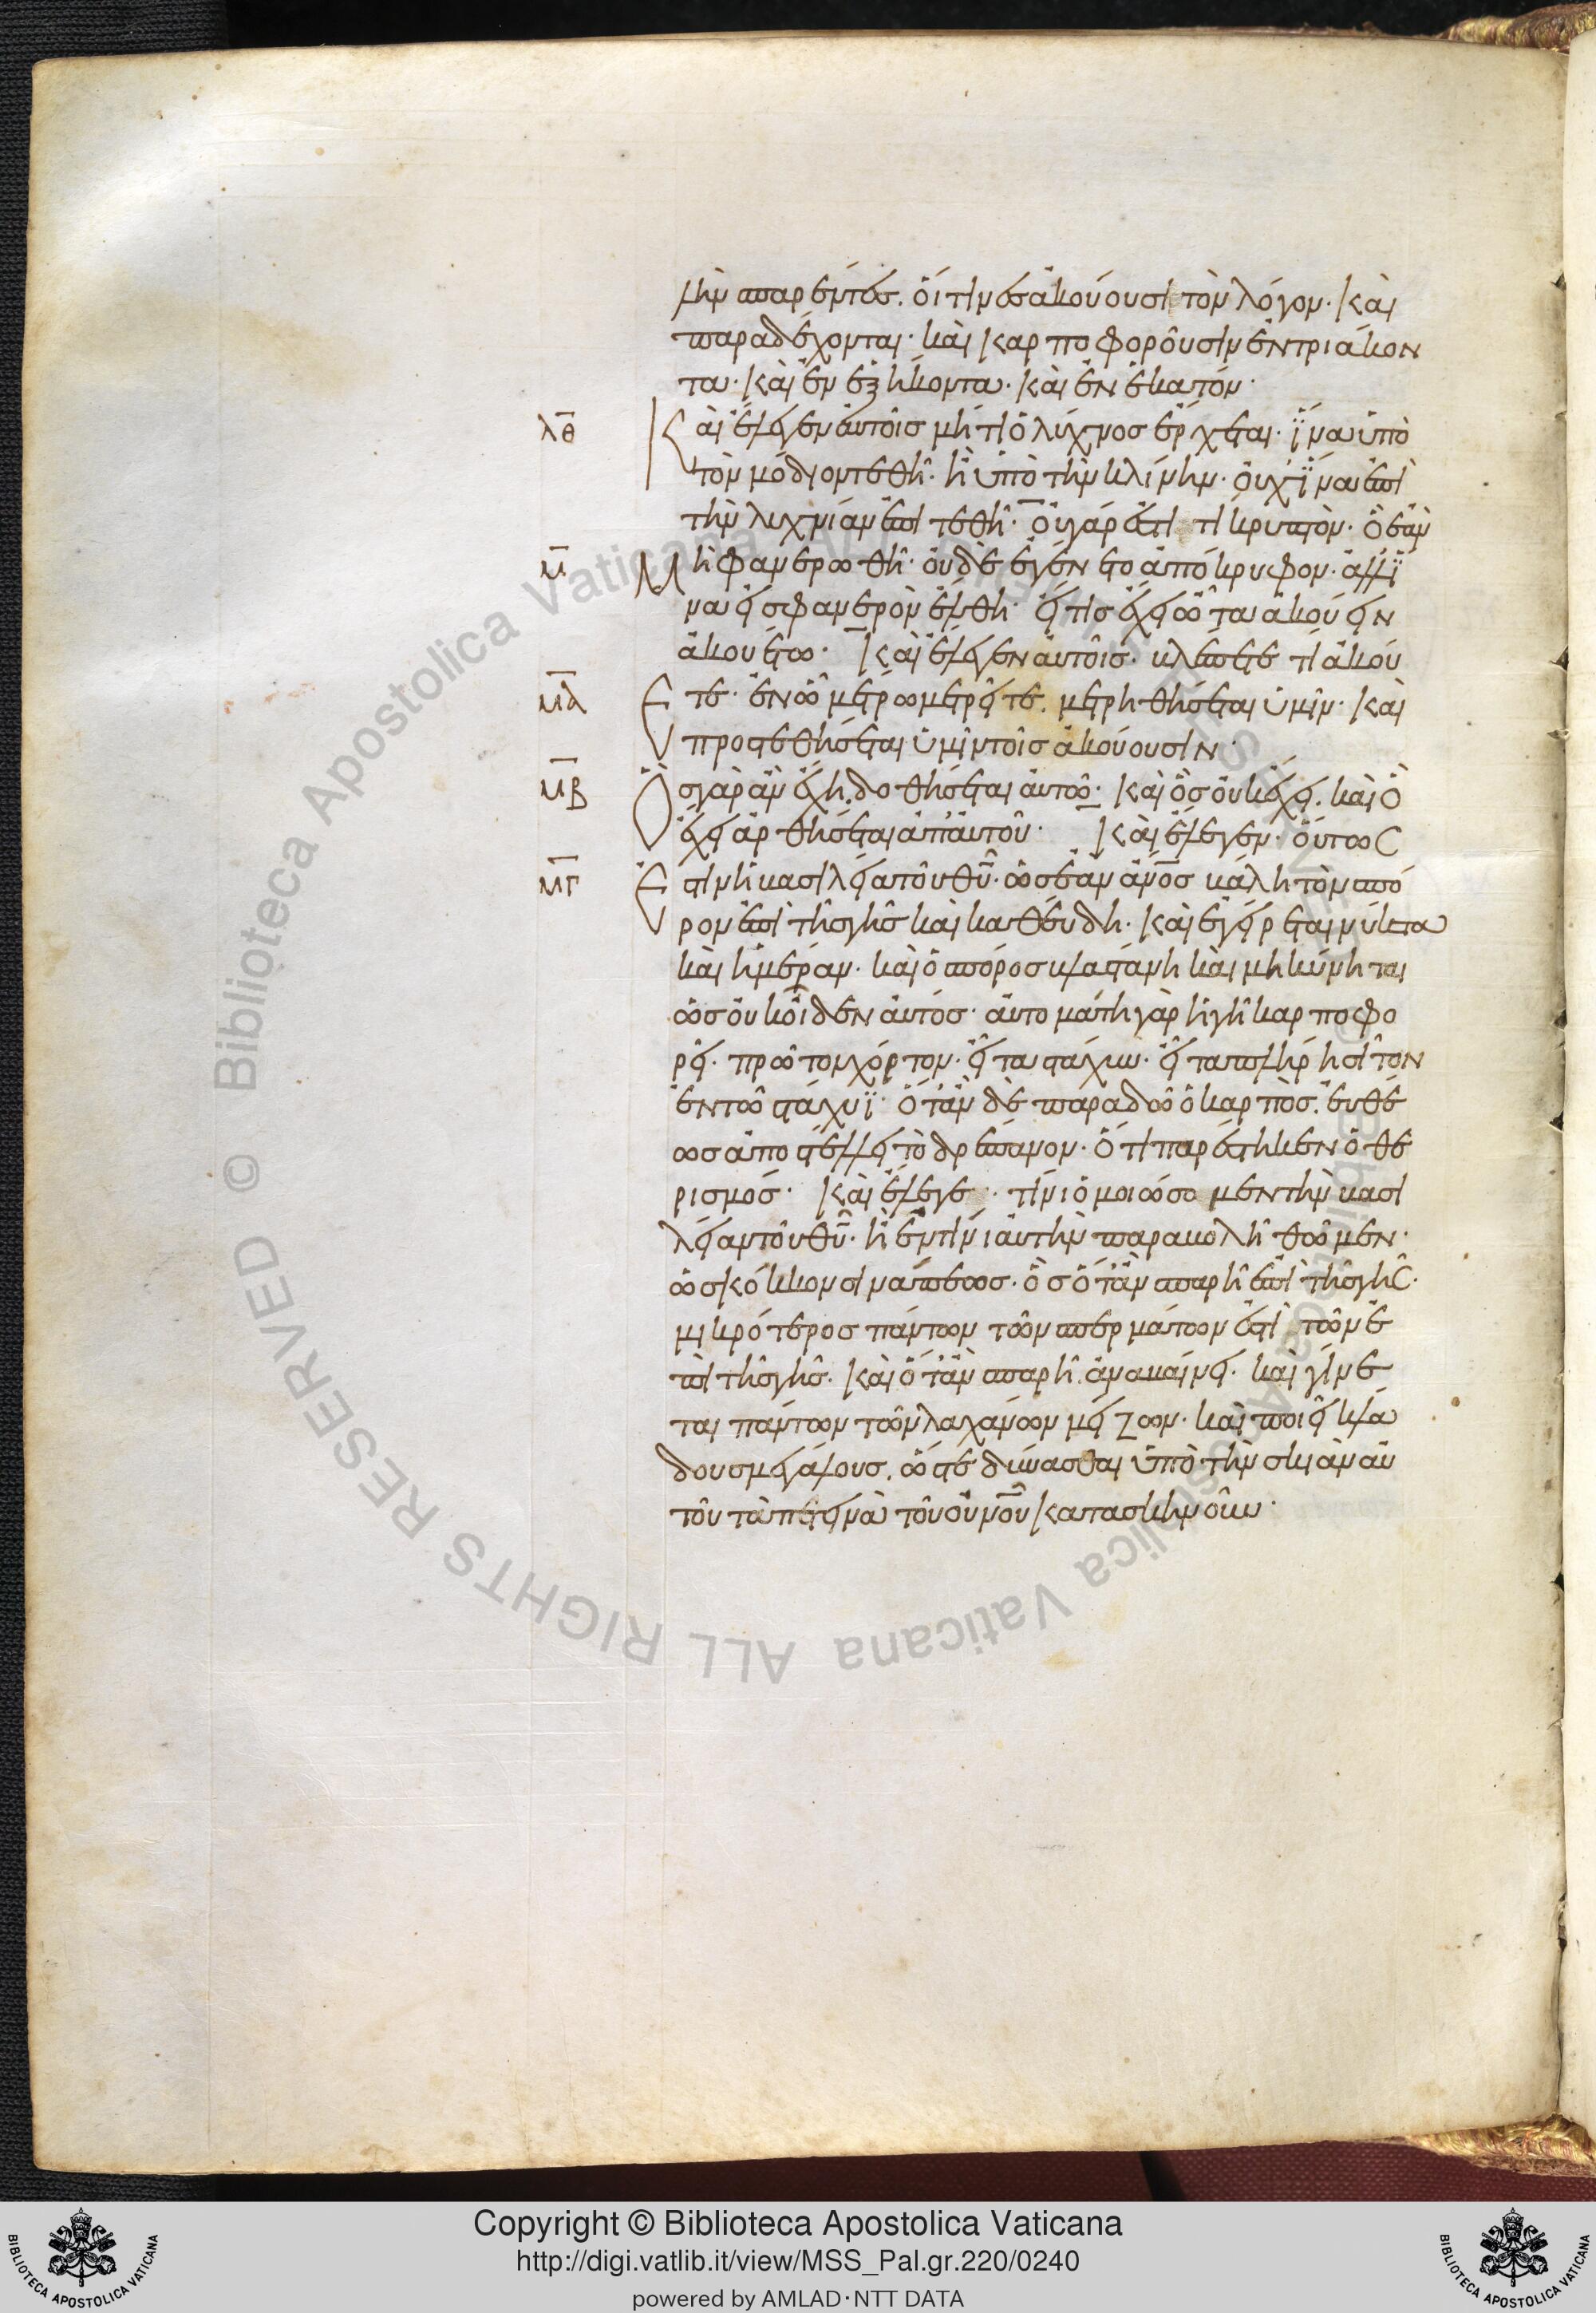 λην σπαρέντες. οἵτινες ἀκούουσι τὸν λόγον. καὶ
παραδέχονται. καὶ καρποφοροῦσιν ἐν τριάκον
τα. καὶ ἐν ἑξήκοντα. καὶ ἐν ἑκατόν.
λθ Καὶ ἔλεγεν αὐτοῖς μήτι ὁ λύχνος ἔρχεται. ἵνα ὑπὸ
τὸν μόδιον τεθῇ. ἢ ὑπὸ τὴν κλίνην. οὐχ ἵνα ἐπὶ
τὴν λυχνίαν ἐπιτεθῇ. οὐ γάρ ἐστί τι κρυπτὸν. ὃ ἐὰν
μ Μὴ φανερωθῇ. οὐδὲ ἐγένετο ἀπόκρυφον. ἀλλ' ἵ
να εἰς φανερὸν ἔλθη. εἴ τις ἔχει ὦτα ἀκούειν
ἀκουέτω. Καὶ ἔλεγεν αὐτοῖς. βλέπετε τί ἀκού
μα Ετε. ἐν ᾧ μέτρω μετρεῖτε. μετρηθήσεται ὑμῖν. καὶ
προστεθήσεται ὑμῖν τοῖς ἀκούουσιν.
μβ Ὃς γὰρ ἂν ἔχη. δοθήσεται αὐτῶ. καὶ ὃς οὐκ ἔχει. καὶ ὃ
ἔχει ἀρθήσεται ἀπ' αὐτοῦ. Καὶ ἔλεγεν. οὕτως
μγ Εστὶν ἡ βασιλεία τοῦ θῦ. ὡς ἐὰν ἄνος βάλη τὸν σπό
ρον ἐπὶ τῆς γῆς καὶ καθεύδη. καὶ ἐγείρεται νύκτα
καὶ ἡμέραν. καὶ ὁ σπόρος βλαστάνη καὶ μηκύνηται
ὡς οὐκ οἶδεν αὐτός. αὐτομάτη γὰρ ἡ γῆ καρποφο
ρεῖ. πρῶτον χόρτον. εἶτα στάχυν. εἶτα πλήρη σῖτον
ἐν τῶ στάχυϊ. ὅταν δὲ παραδῶ ὁ καρπὸς. εὐθέ
ως ἀποστέλλει τὸ δρέπανον. ὅτι παρέστηκεν ὁ θε
ρισμός. Καὶ ἔλεγε. τίνι ὁμοιώσομεν τὴν βασι
λείαν τοῦ θῦ. ἢ ἐν τίνι αὐτὴν παραβολῇ θῶμεν.
ὡς κόκκον σινάπεως. ὃς ὅταν σπαρῇ ἐπὶ τῆς γῆς.
μικρότερος πάντων τῶν σπερμάτων ἐστὶ τῶν ἐ
πὶ τῆς γῆς. καὶ ὅταν σπαρῇ. ἀναβαίνει. καὶ γίνε
ται πάντων τῶν λαχάνων μείζων. καὶ ποιεῖ κλά
δους μεγάλους. ὥστε δύνασθαι ὑπὸ τὴν σκιὰν αὐ
τοῦ τὰ πετεινὰ τοῦ οὐνοῦ κατασκηνοῦν.
Copyright © Biblioteca Apostolica Vaticana
http://digi.vatlib.it/view/MSS_Pal.gr.220/0240
powered by AMLAD·NTT DATA
BIBLIOTECA APOSTOLICA VATICANA
BIBLIOTECA APOSTOLICA VATICANA
© Biblioteca Apostolica Vaticana ALL RIGHTS RESERVED